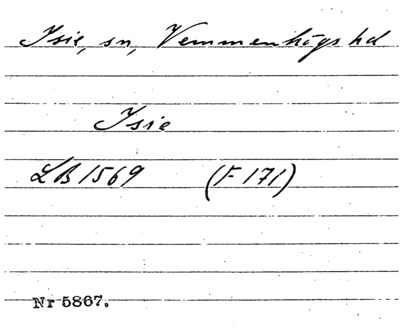 Isie, sn, Vemmenhögs hd
Isie
LB 1569 (F 171)
Nr 5867.